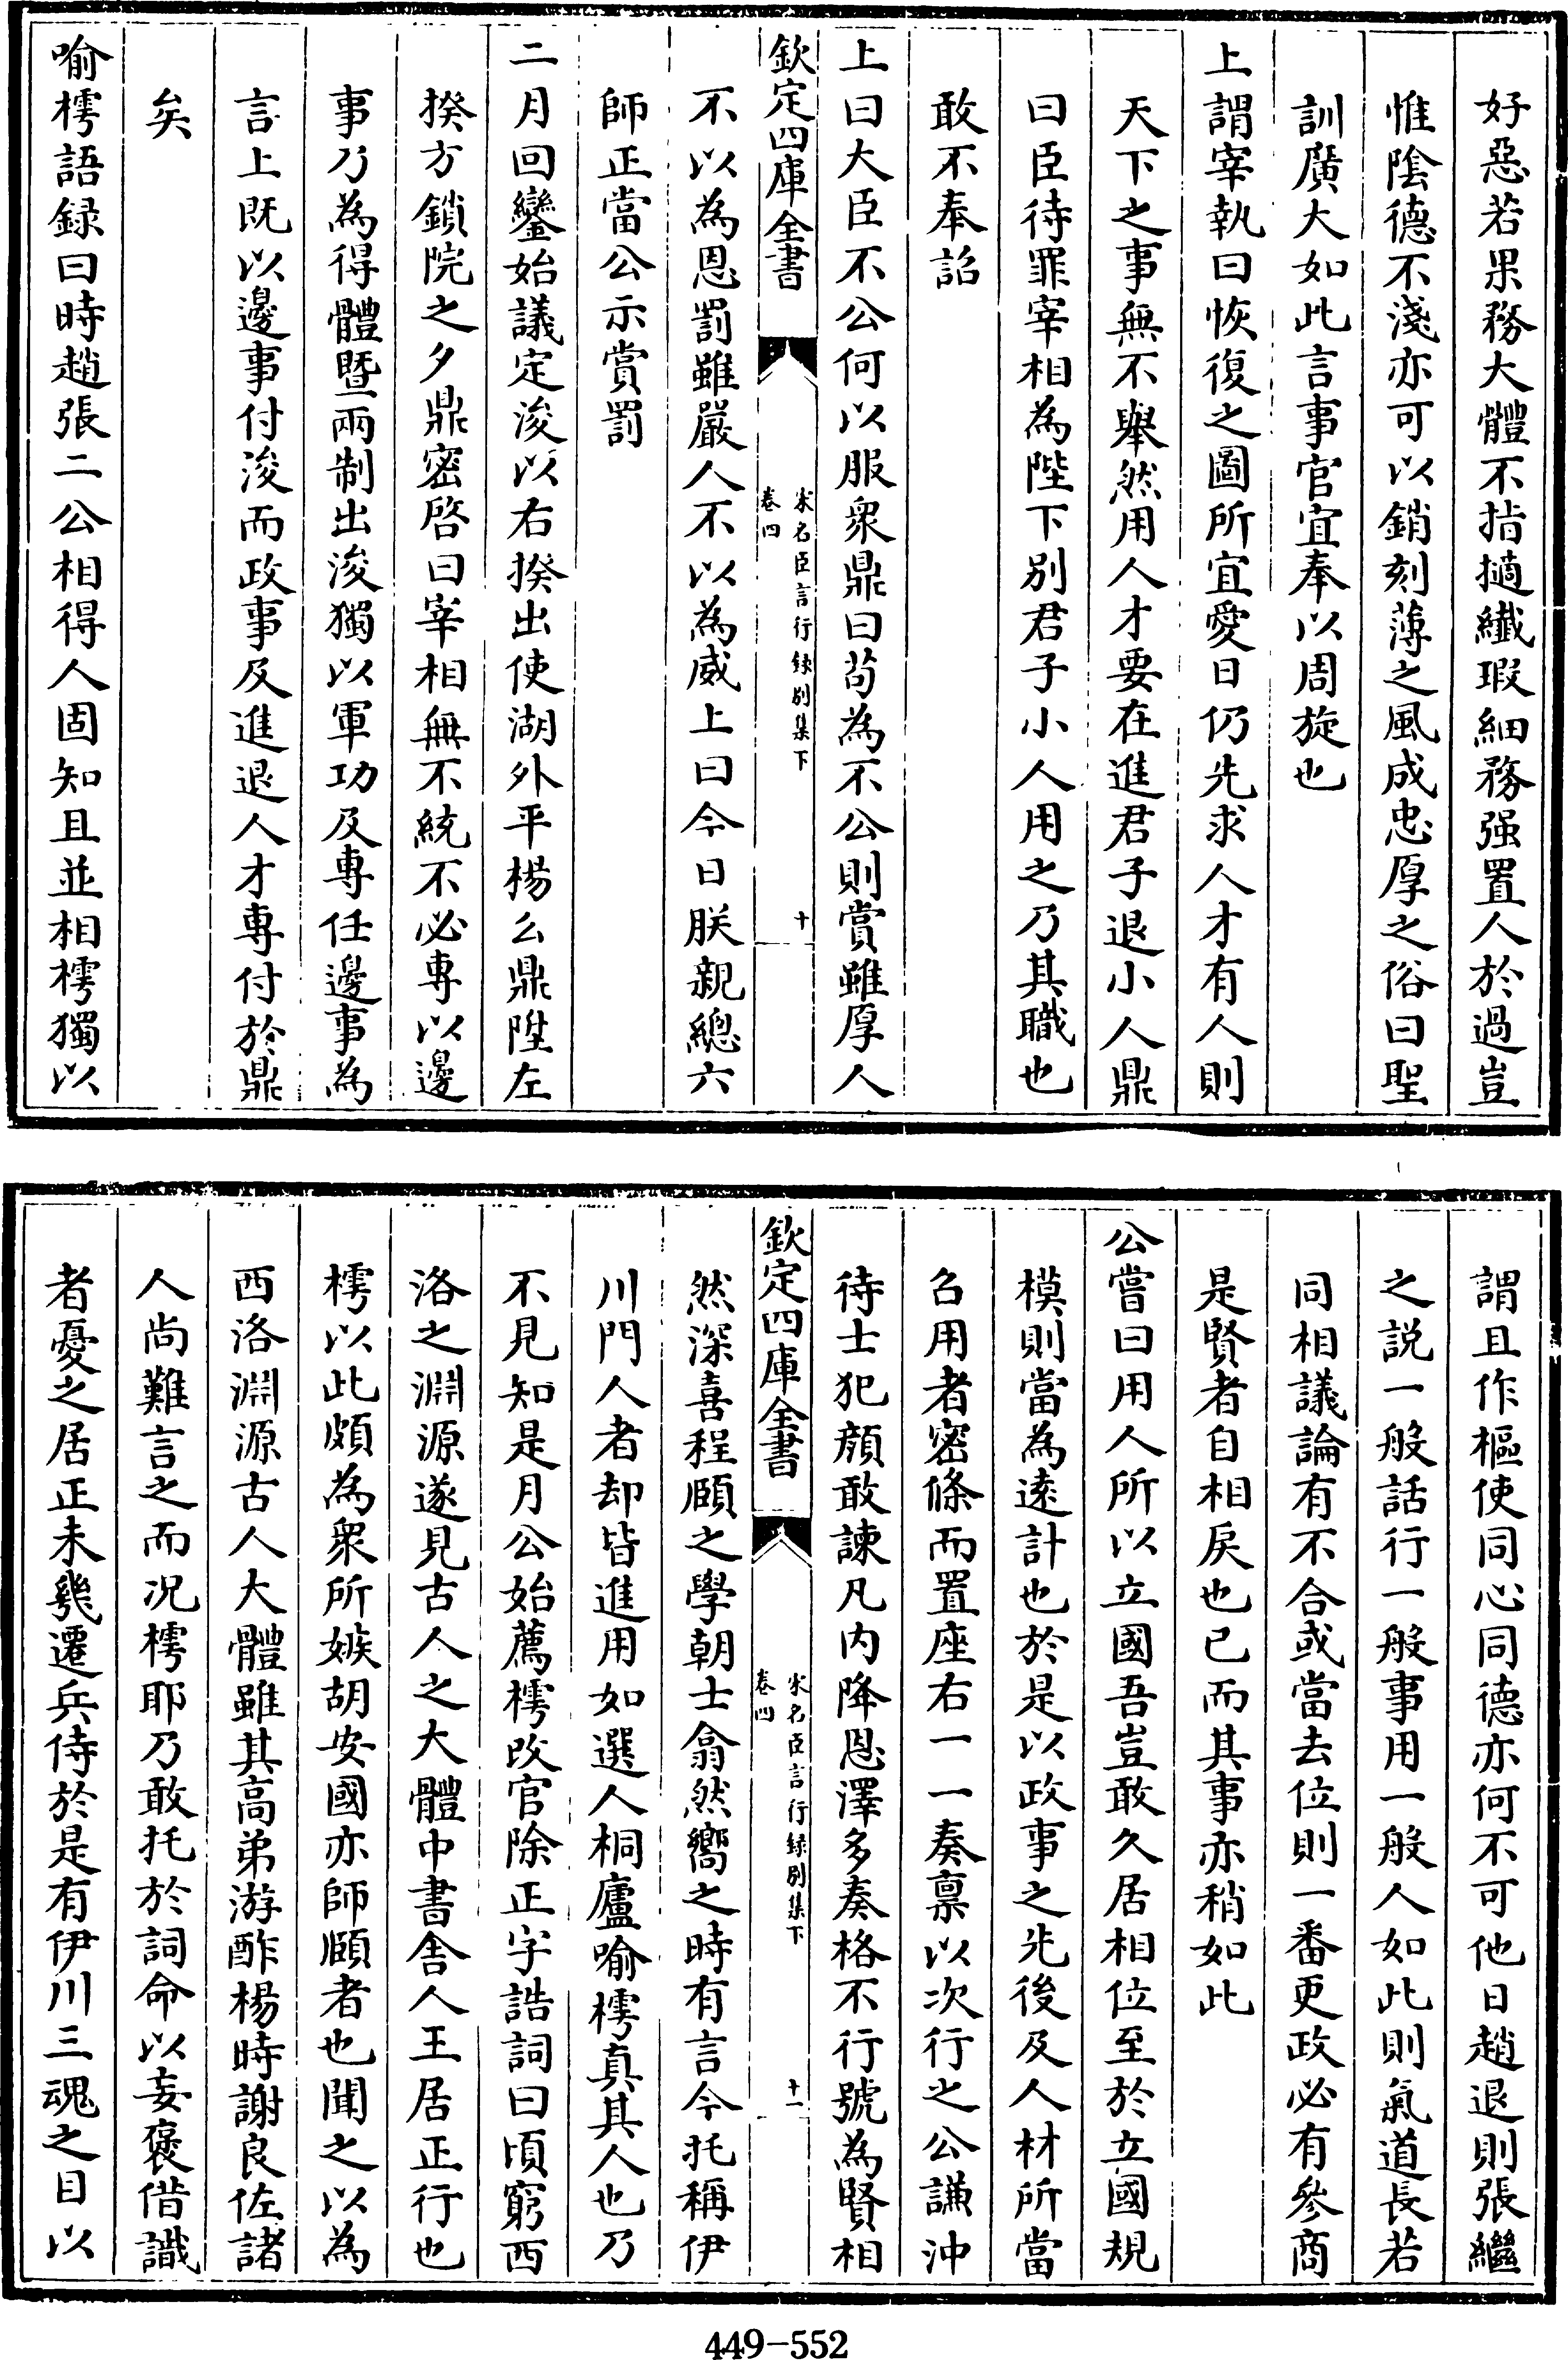 好惡若果務大體不指擿纖瑕細務强置人於過豈
惟隂德不淺亦可以銷刻薄之風成忠厚之俗曰聖
訓廣大如此言事官宜奉以周旋也
上謂宰執曰恢復之圖所宜愛日仍先求人才有人則
天下之事無不舉然用人才要在進君子退小人鼎
曰臣待罪宰相為陛下别君子小人用之乃其職也
敢不奉詔
上曰大臣不公何以服衆鼎曰苟為不公則賞雖厚人
欽定四庫全書
宋名臣言行録别集下
卷四
十
不以為恩罰雖嚴人不以為威上曰今日朕親總六
師正當公示賞罰
二月回鑾始議定浚以右揆出使湖外平楊么鼎陞左
揆方鎖院之夕鼎密啓曰宰相無不統不必專以邊
事乃為得體暨兩制出浚獨以軍功及專任邊事為
言上既以邊事付浚而政事及進退人才專付於鼎
矣
喻樗語録曰時趙張二公相得人固知且並相樗獨以
謂且作樞使同心同德亦何不可他日趙退則張繼
之説一般話行一般事用一般人如此則氣道長若
同相議論有不合或當去位則一番更政必有參商
是賢者自相戾也已而其事亦稍如此
公嘗曰用人所以立國吾豈敢久居相位至於立國規
模則當為逺計也於是以政事之先後及人材所當
召用者密條而置座右一一奏禀以次行之公謙沖
待士犯顔敢諫凡内降恩澤多奏格不行號為賢相
欽定四庫全書
宋名臣言行録别集下
卷四
十一
然深喜程頤之學朝士翕然嚮之時有言今托稱伊
川門人者却皆進用如選人桐廬喻樗真其人也乃
不見知是月公始薦樗改官除正字誥詞曰頃窮西
洛之淵源遂見古人之大體中書舍人王居正行也
樗以此頗為衆所嫉胡安國亦師頤者也聞之以為
西洛淵源古人大體雖其高弟游酢楊時謝良佐諸
人尚難言之而况樗耶乃敢托於詞命以妄褒借識
者憂之居正未幾遷兵侍於是有伊川三魂之目以
449-552